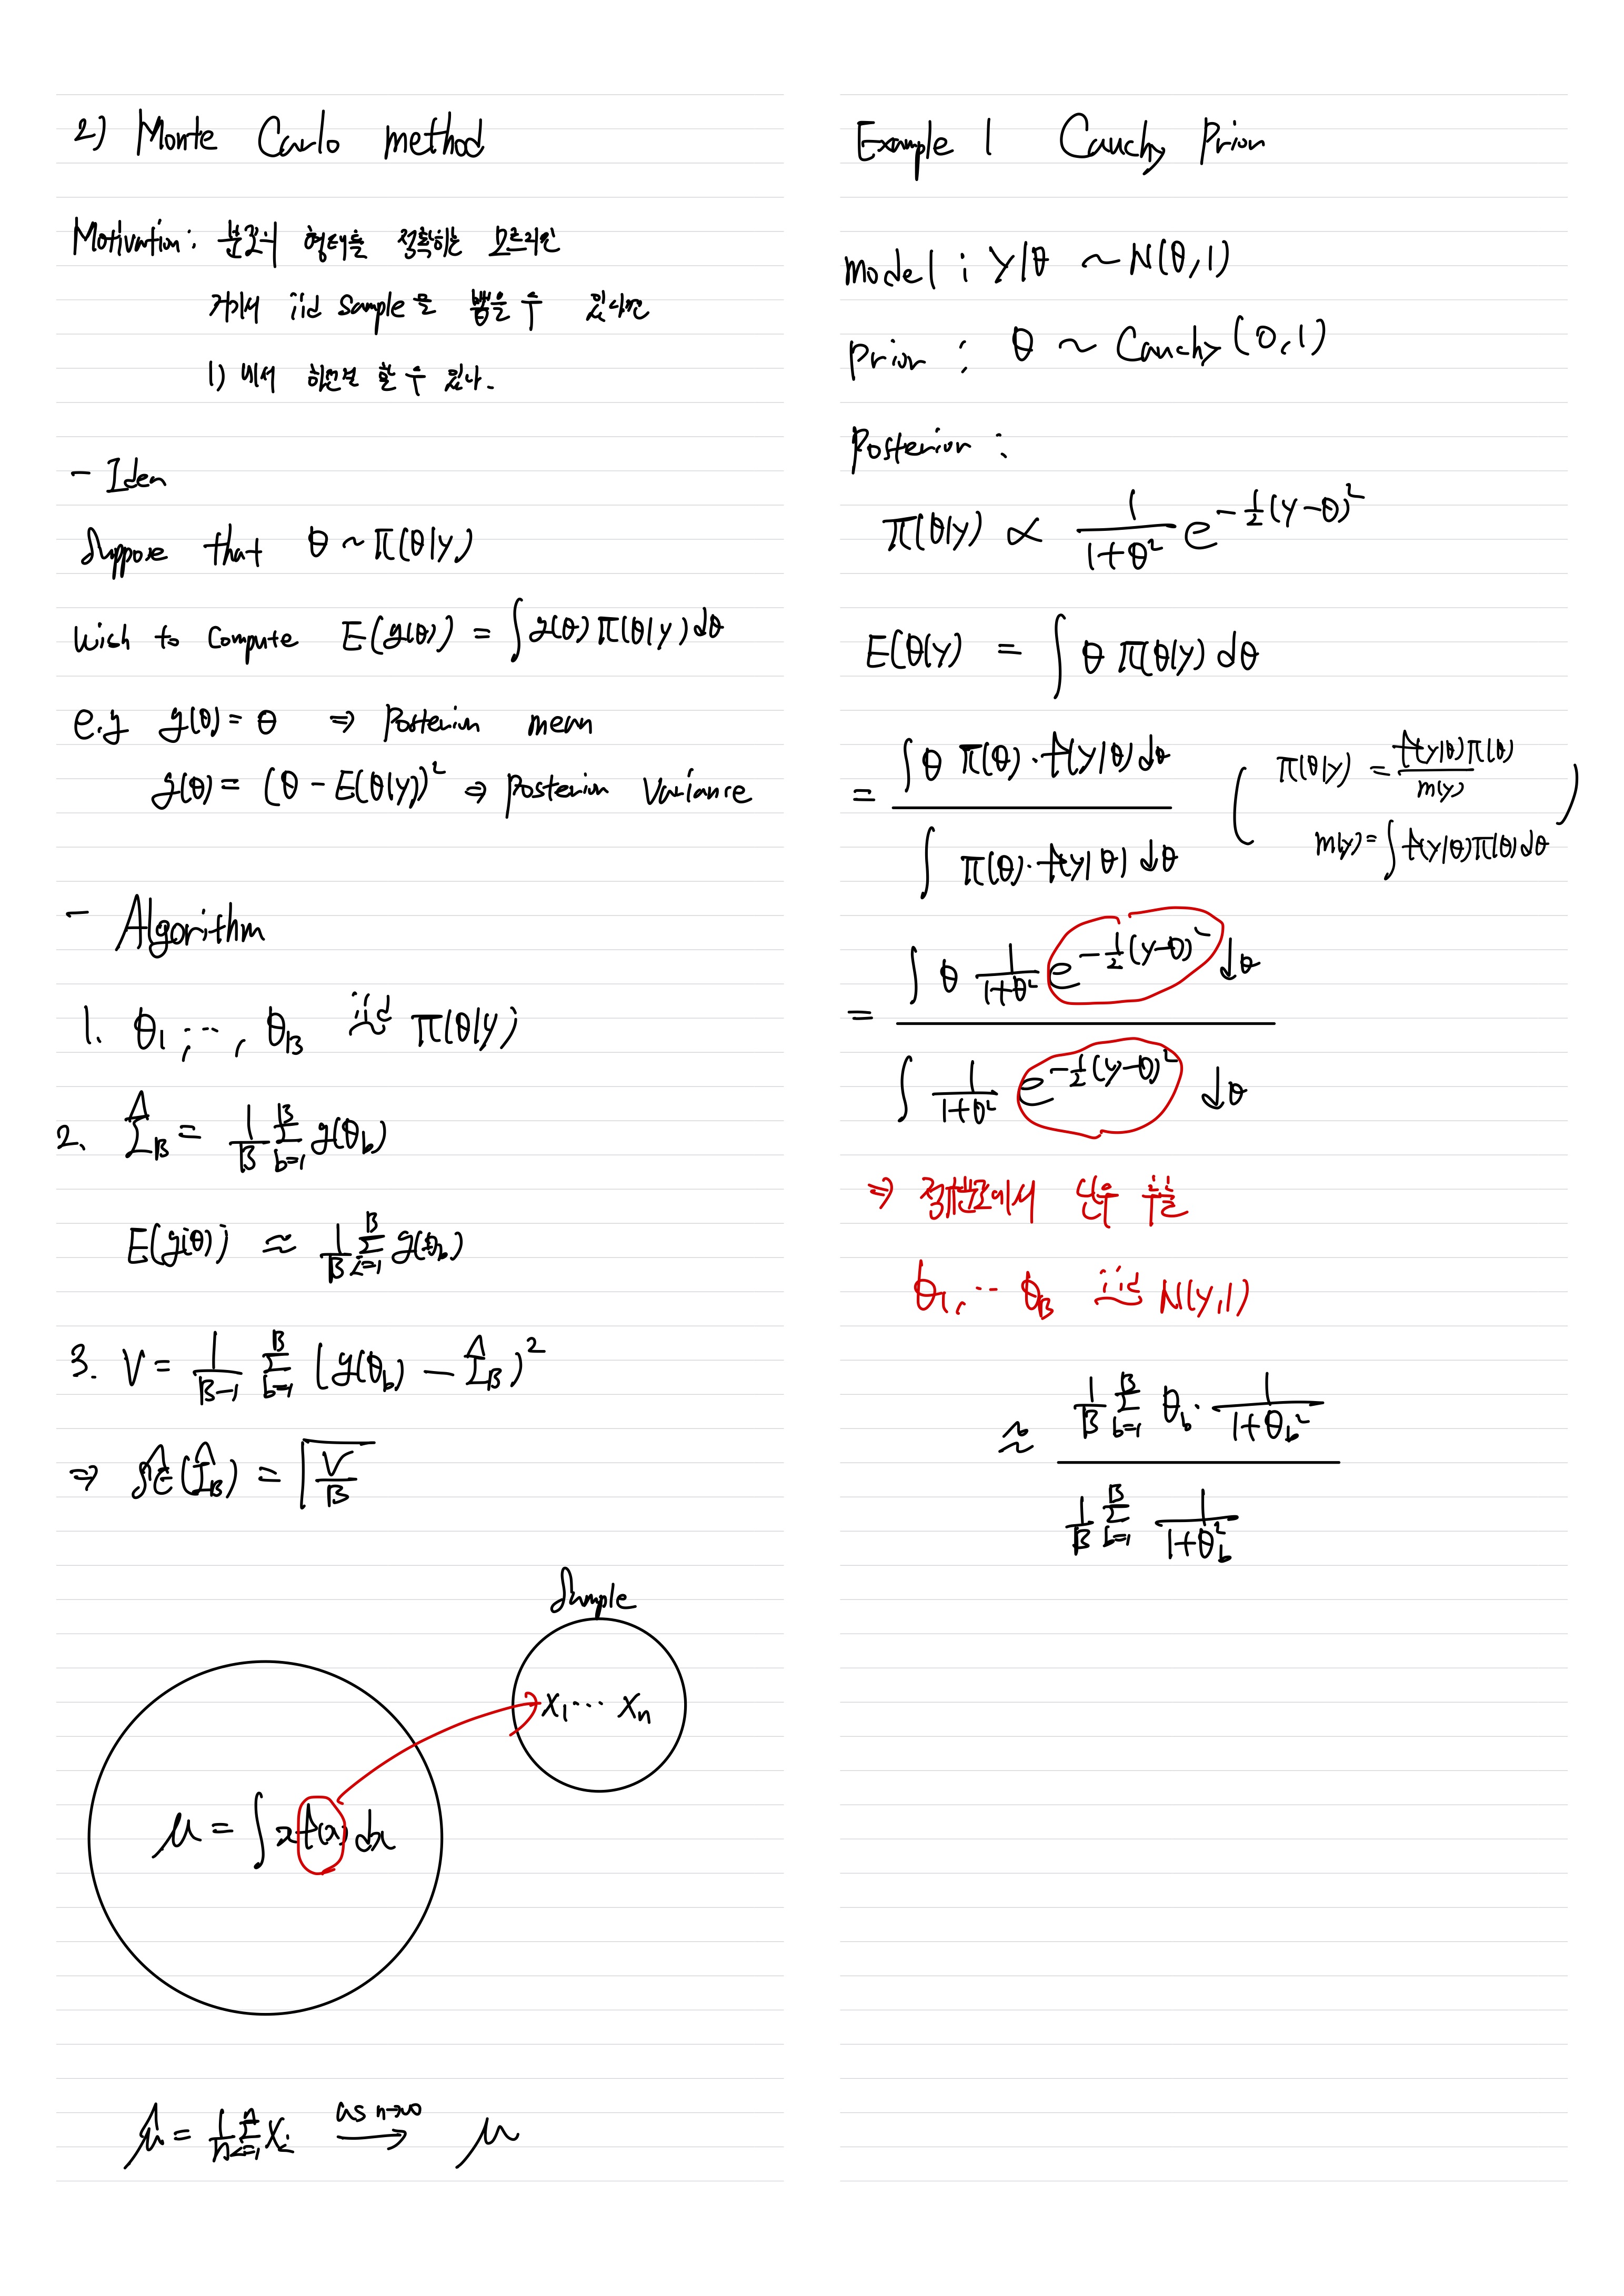 2) Monte Carlo method
Motivation: 분포의 형태를 정확히는 모르지만
거기서 iid sample을 뽑을 수 있다면
1) 에서 하던걸 할 수 있다.
- Idea
Suppose that θ ~ π(θ|y)
Wish to compute E(g(θ)) = ∫ g(θ) π(θ|y) dθ
e.g g(θ) = θ ⇒ Posterior mean
g(θ) = (θ - E(θ|y))² ⇒ Posterior Variance
- Algorithm
1. θ₁, ⋯, θ_B iid~ π(θ|y)
2. Î_B = 1/B Σ_{b=1}^B g(θ_b)
E(g(θ)) ≈ 1/B Σ_{i=1}^B g(θ_b)
3. V = 1/(B-1) Σ_{b=1}^B (g(θ_b) - Î_B)²
⇒ ŝe(Î_B) = √(V/B)
Sample
X₁ ⋯ Xₙ
μ = ∫ x f(x) dx
μ̂ = 1/n Σ_{i=1}^n X_i as n→∞ ⟶ μ
Example 1 Cauchy Prior
model : y|θ ~ N(θ,1)
Prior : θ ~ Cauchy(0,1)
Posterior :
π(θ|y) ∝ 1/(1+θ²) e^{-1/2(y-θ)²}
E(θ|y) = ∫ θ π(θ|y) dθ
= ∫ θ π(θ)·f(y|θ) dθ / ∫ π(θ)·f(y|θ) dθ
( π(θ|y) = f(y|θ)π(θ) / m(y)
m(y) = ∫ f(y|θ)π(θ) dθ )
= ∫ θ 1/(1+θ²) e^{-1/2(y-θ)²} dθ / ∫ 1/(1+θ²) e^{-1/2(y-θ)²} dθ
⇒ 정규분포에서 난수 추출
θ₁, ⋯ θ_B iid~ N(y,1)
≈ 1/B Σ_{b=1}^B θ_b · 1/(1+θ_b²) / 1/B Σ_{b=1}^B 1/(1+θ_b²)